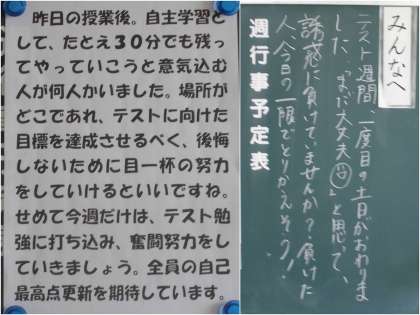 昨日の授業後。自主学習と
して、たとえ30分でも残っ
てやっていこうと意気込む
人が何人かいました。場所が
どこであれ、テストに向けた
目標を達成させるべく、後悔
しないために目一杯の努力
をしていけるといいですね。
せめて今週だけは、テスト勉
強に打ち込み、奮闘努力をし
ていきましょう。全員の自己
最高点更新を期待しています。
みんなへ
テスト週間、一度目の土日がおわりま
した。「まだ大丈夫」と思って、
誘惑に負けていませんか?負けた
人、今日の一限でとりかえそう!
週行事予定表